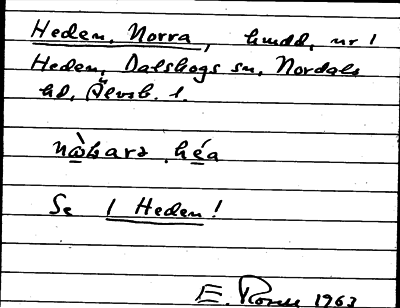 Heden, Norra, hmdd, nr 1
Heden, Dalskogs sn, Nordals
hd, Älvsb. l.
héa
Se 1 Heden!
E. 1963